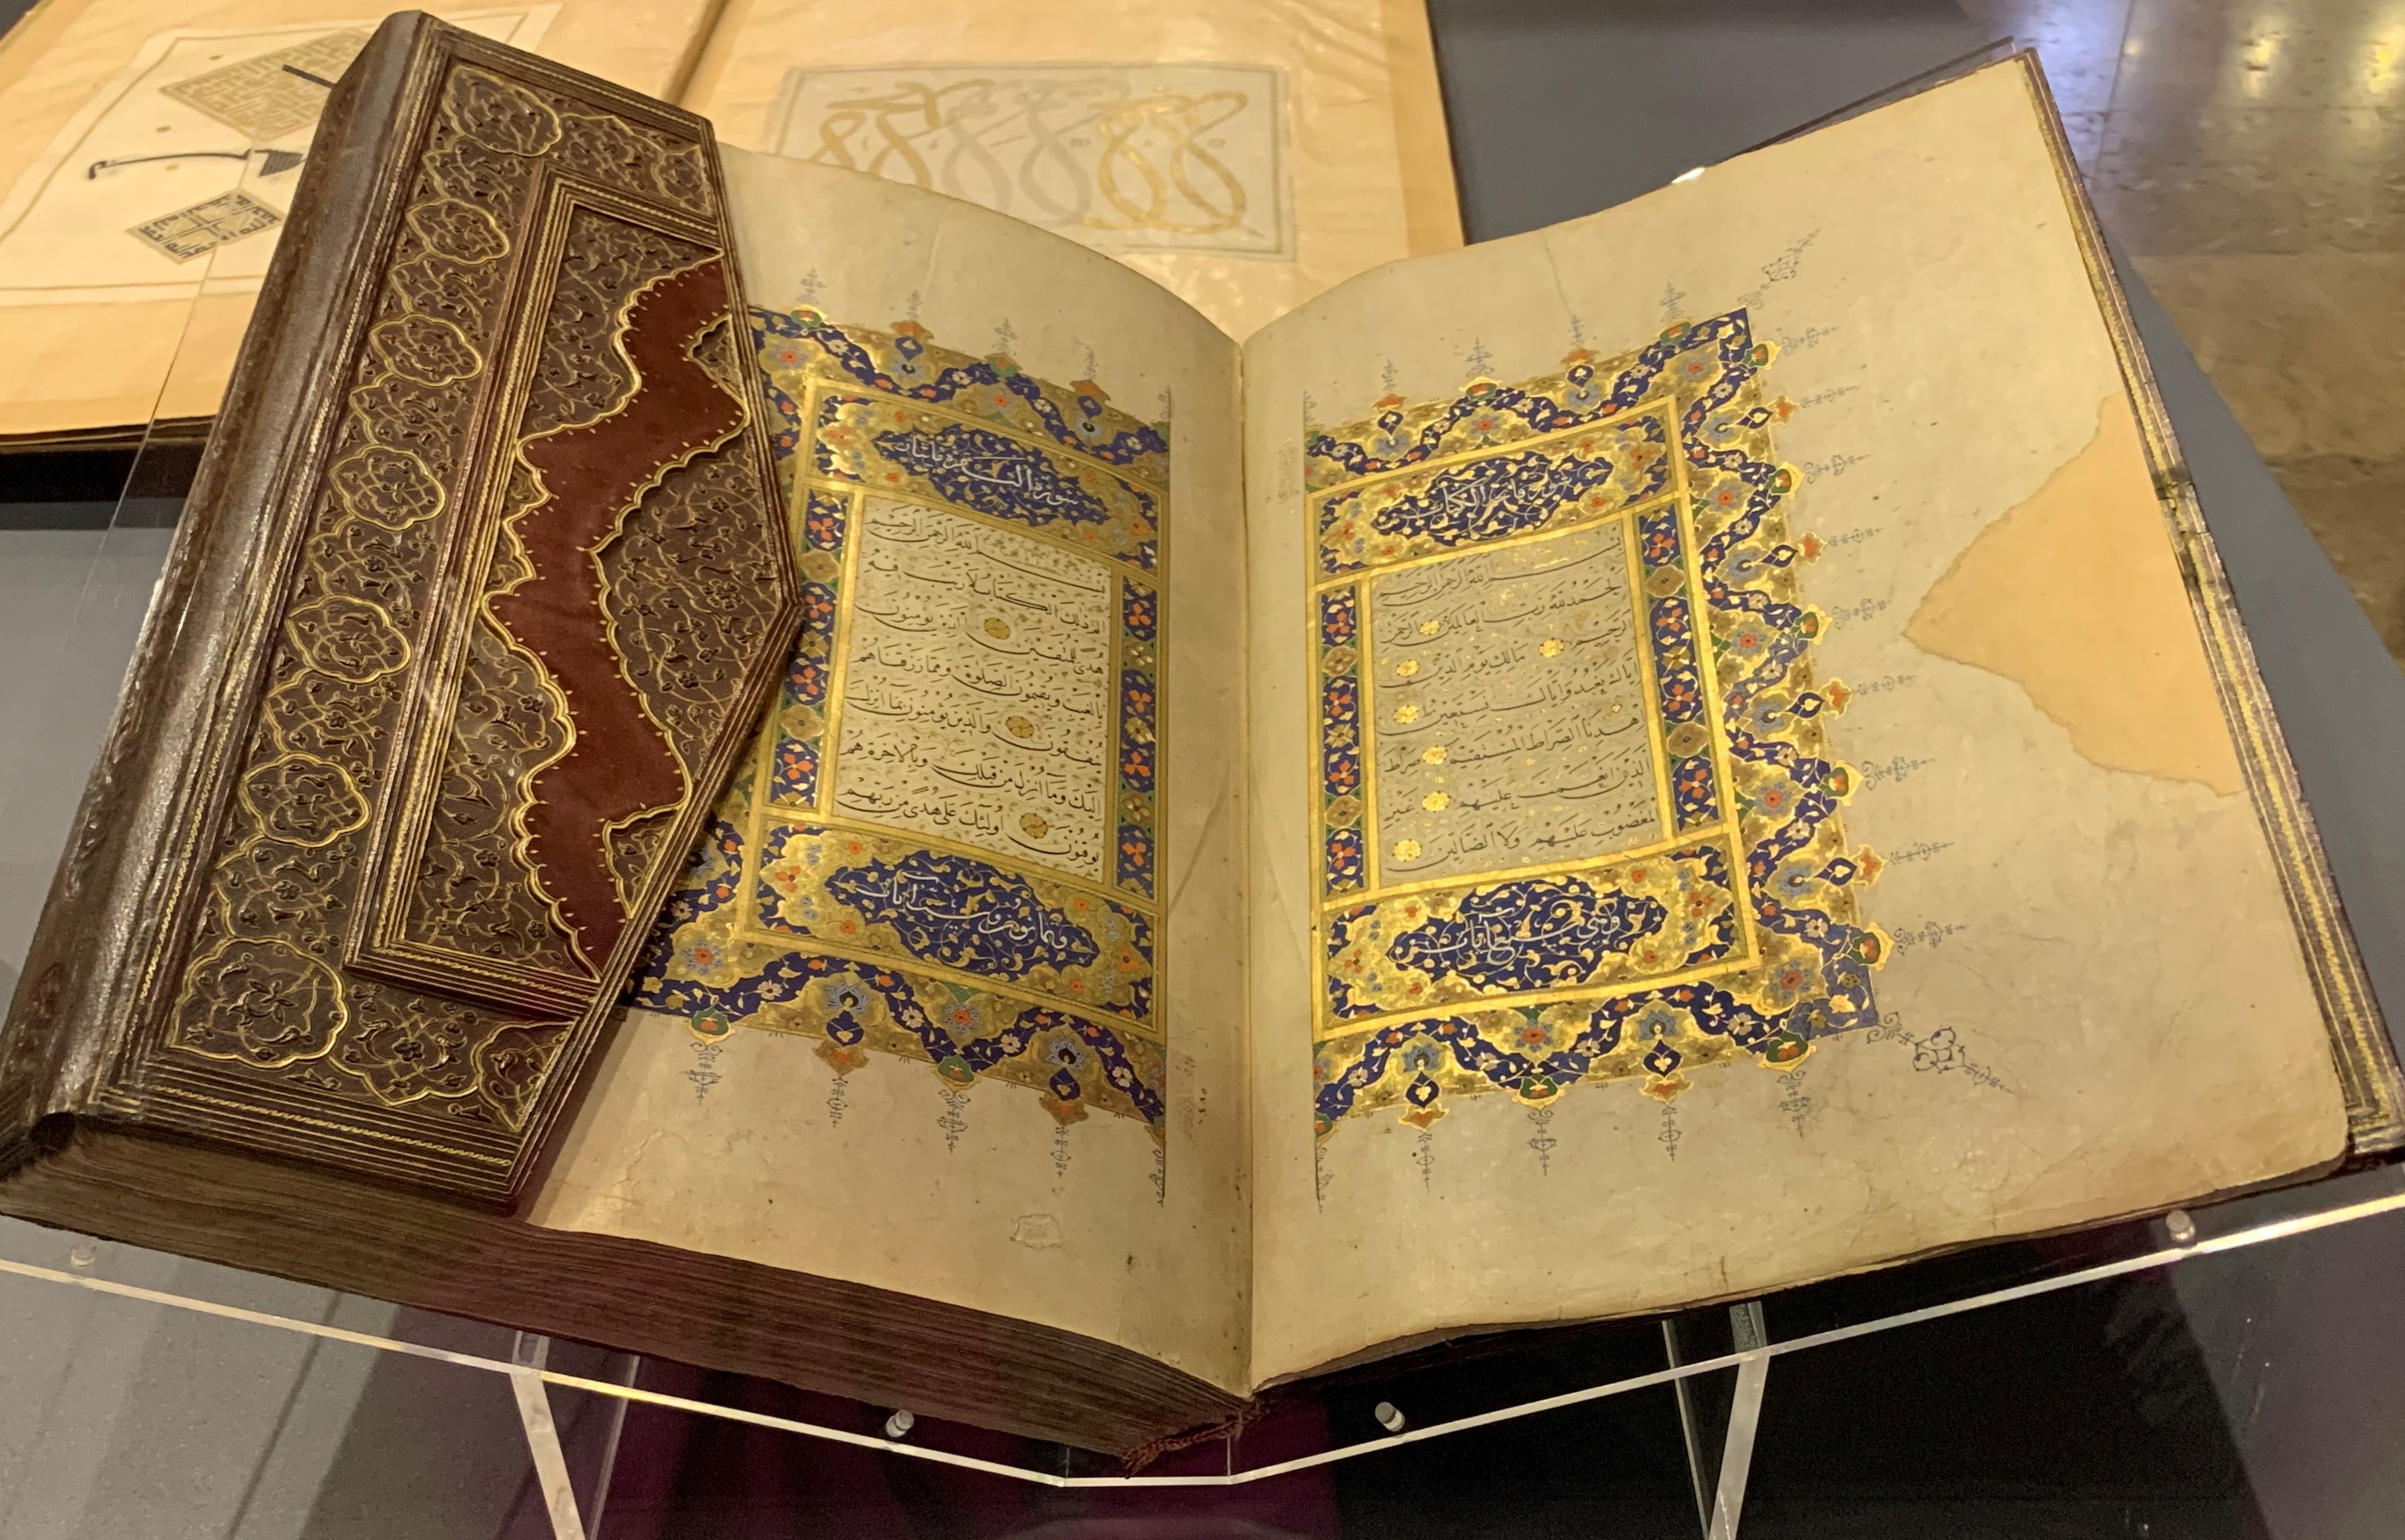 سورة فاتحة الكتاب
بسم الله الرحمن الرحيم
الحمد لله رب العالمين الرحمن
الرحيم مالك يوم الدين
اياك نعبد واياك نستعين
اهدنا الصراط المستقيم صراط
الذين انعمت عليهم غير
المغضوب عليهم ولا الضالين
وهي سبع آيات
سورة البقرة مائتان
بسم الله الرحمن الرحيم
الم ذلك الكتاب لا ريب فيه
هدى للمتقين الذين يؤمنون
بالغيب ويقيمون الصلوة ومما رزقناهم
ينفقون والذين يؤمنون بما انزل
اليك وما انزل من قبلك وبالاخرة هم
يوقنون اولئك على هدى من ربهم
وثمانون وست آيات